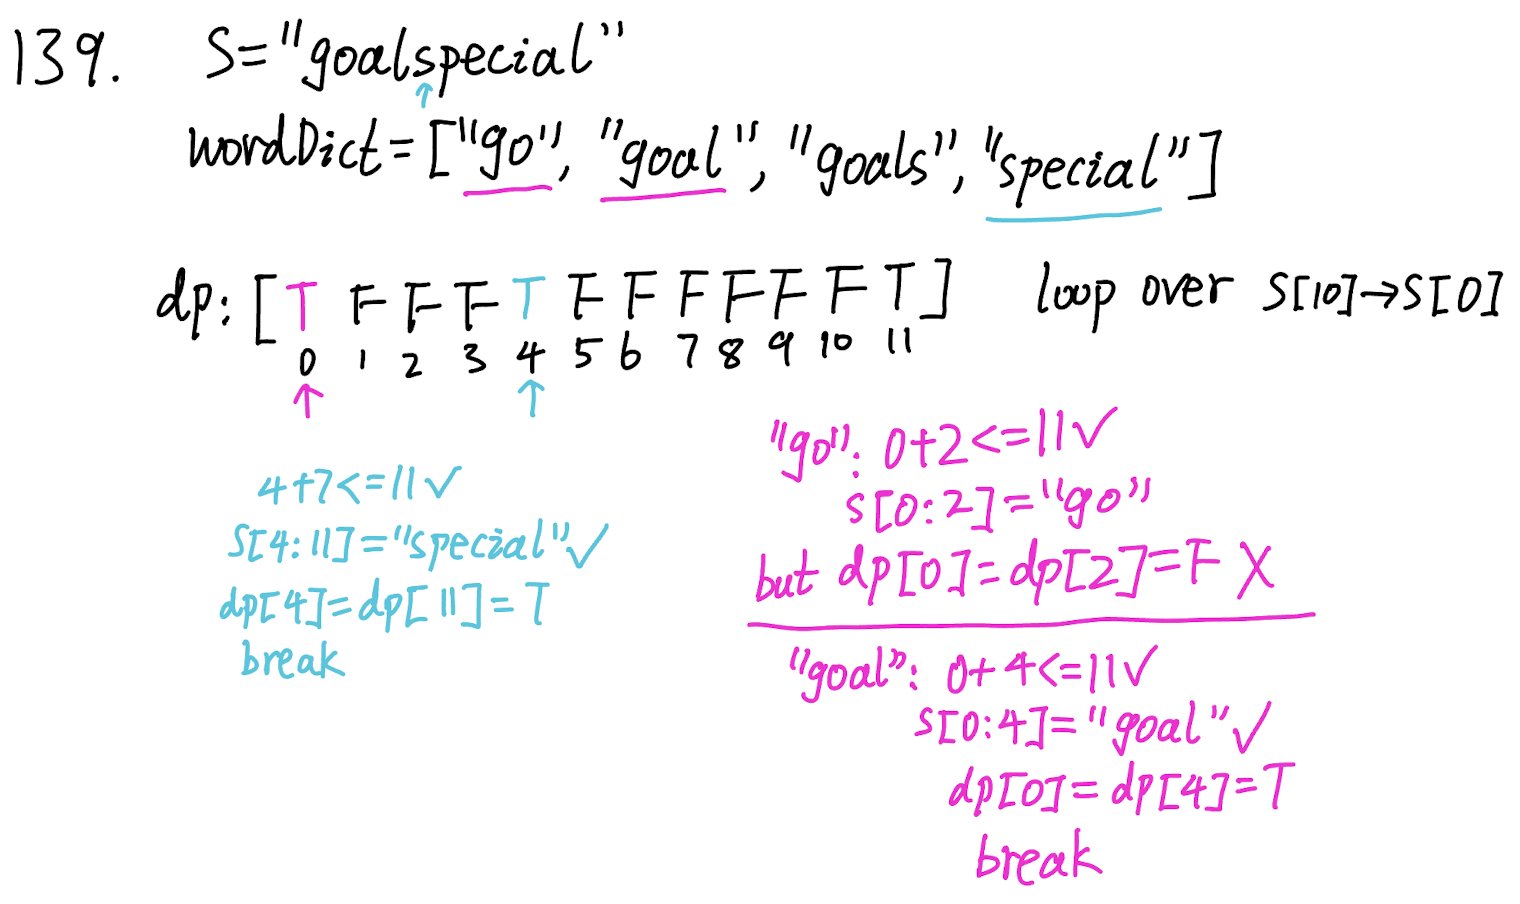 139. S="goalspecial"
wordDict=["go", "goal", "goals", "special"]
dp: [T F F F T F F F F F F T] loop over S[10]→S[0]
0 1 2 3 4 5 6 7 8 9 10 11
↑ ↑
4+7<=11✓
S[4:11]="special"✓
dp[4]=dp[11]=T
break
"go": 0+2<=11✓
s[0:2]="go"
but dp[0]=dp[2]=F X
"goal": 0+4<=11✓
s[0:4]="goal"✓
dp[0]=dp[4]=T
break